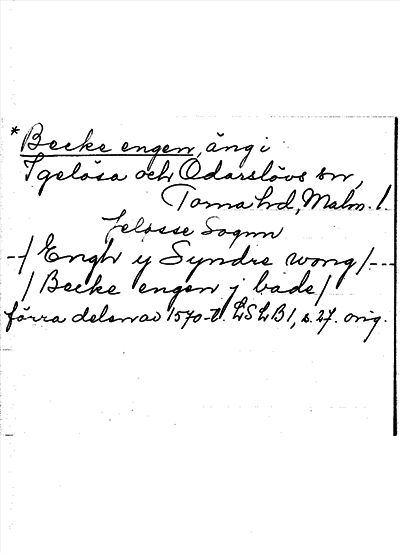 * Becke engen, äng i
Igelösa och Odarslövs sn,
Torna hd, Malm. l.
Jelösse Sognn
--/ Engh y Syndre wong/---
/ Becke engen j bade/
förra delen av 1570-t. LSLB1, s. 27. orig.